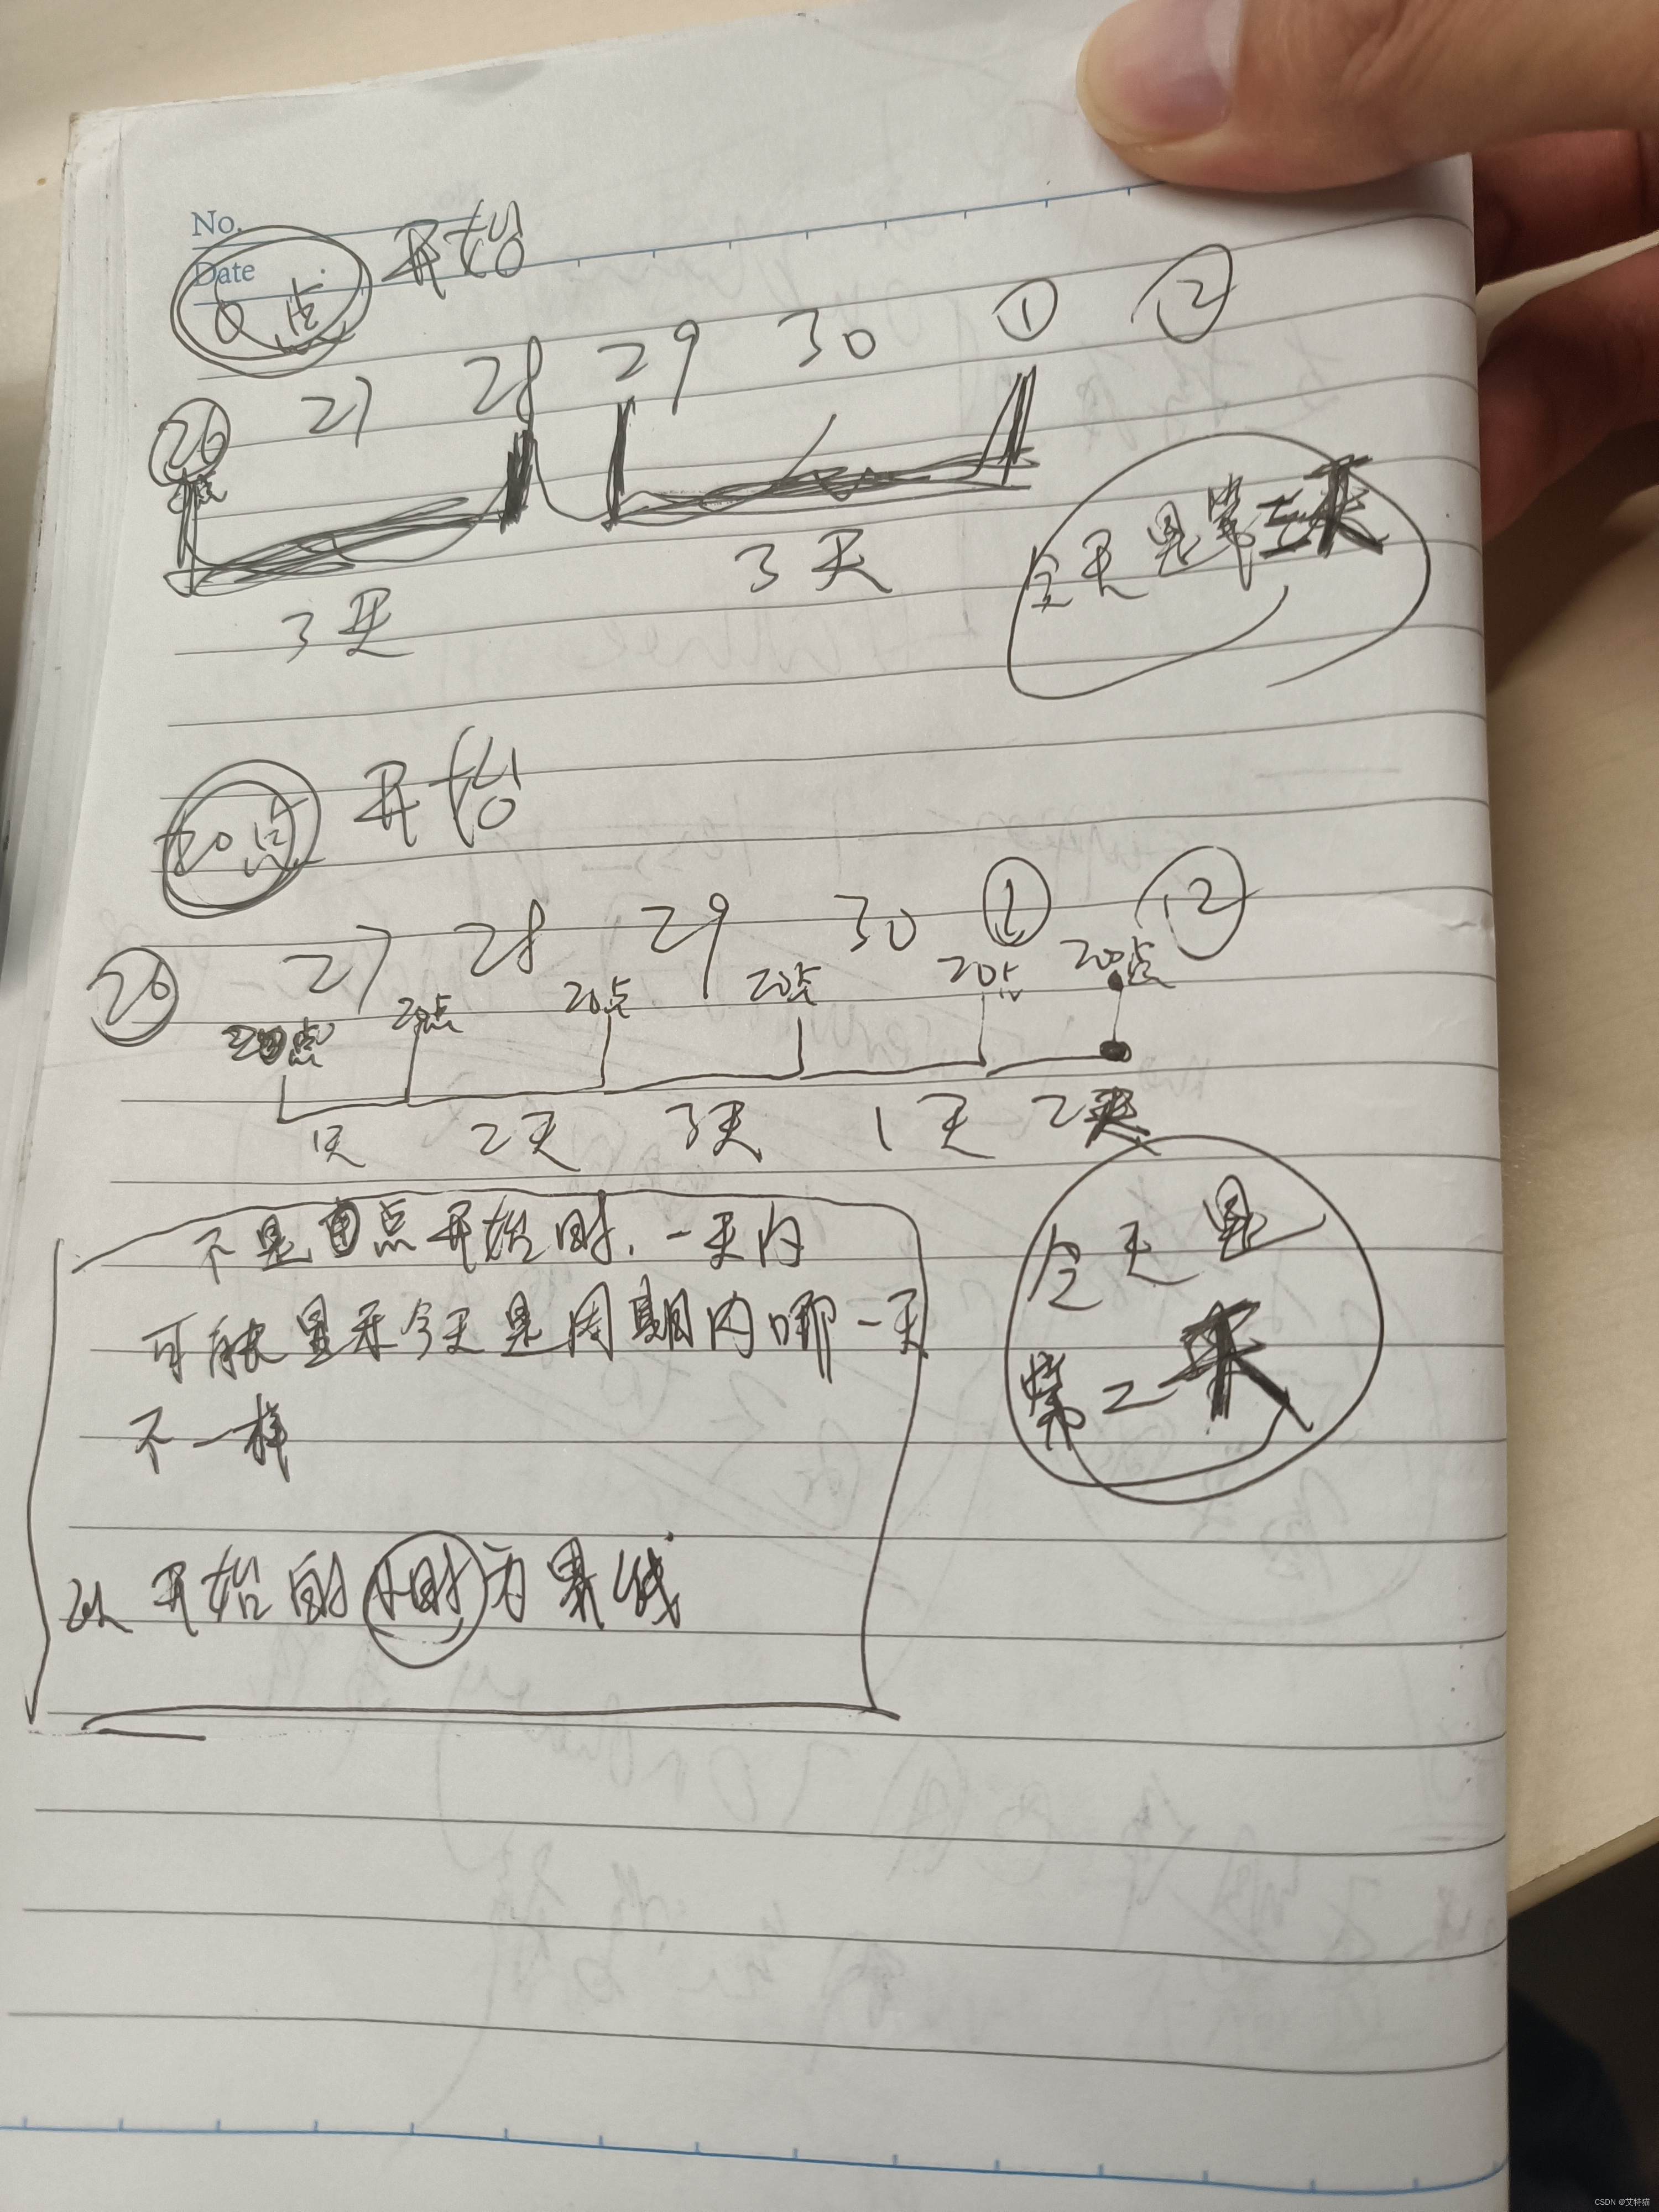 No.
Date
0点 开始
26 27 28 29 30 ① ②
3天 3天
今天是第三天
20点 开始
26 27 28 29 30 ① ②
20点 20点 20点 20点 20点 20点
1天 2天 3天 1天 2天
今天是
第二天
不是0点开始时，一天内
可能显示今天是周期内哪一天
不一样
以开始的小时为界线
CSDN @艾特猫